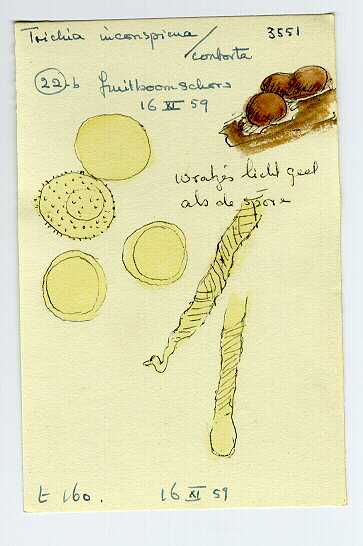 Trichia inconspicua / contorta
3551
22-b fruitboomschors
16 XI 59
wratjes licht geel
als de spore
t 160.
16 XI 59